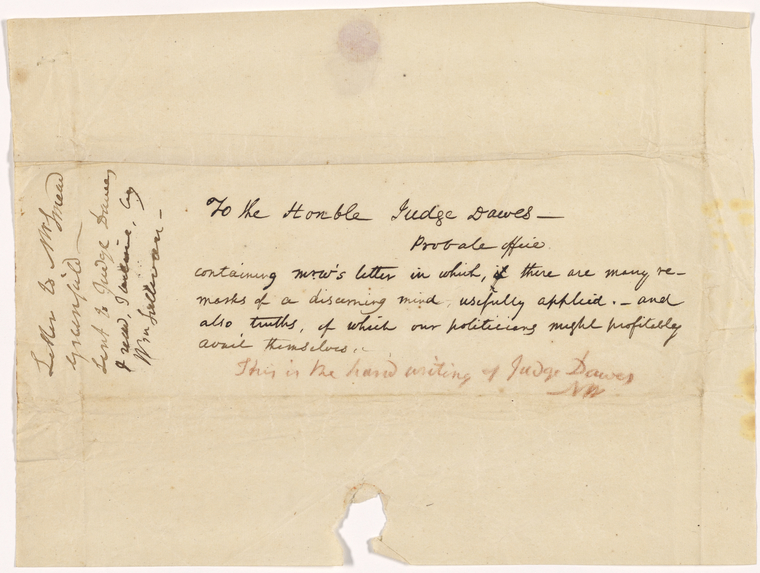 To the Honble Judge Dawes—
Probate office.
containing mrw's letter in which, there are many re-
marks of a discerning mind, usefully applied. — and
also truths, of which our politicians might profitably
avail themselves.
This is the hand writing of Judge Dawes
NW.
Letter to Mrs Mead
Greenfield—
Sent to Judge Dawes
& read, I believe, by
Wm Sullivan—